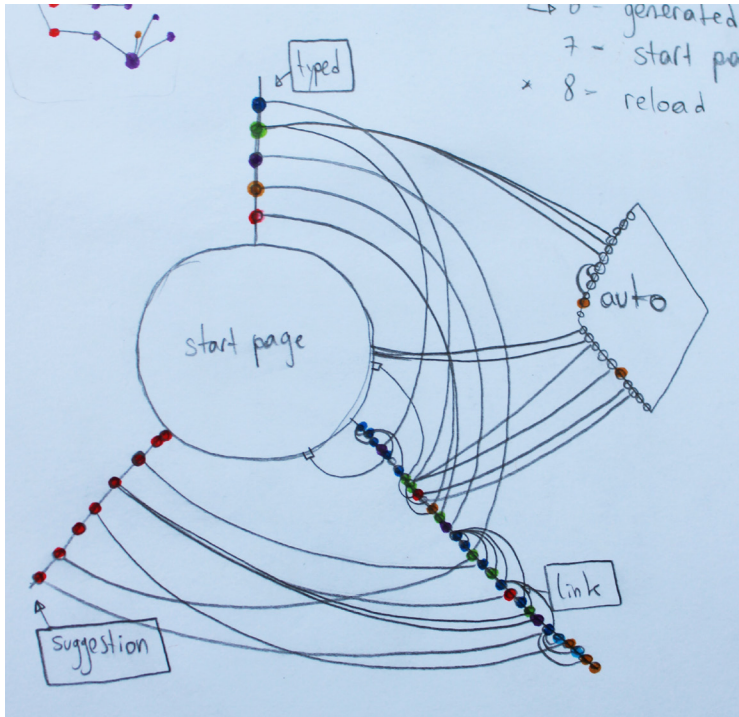 6 - generated
7 - start pa
* 8 - reload
typed
auto
start page
link
suggestion